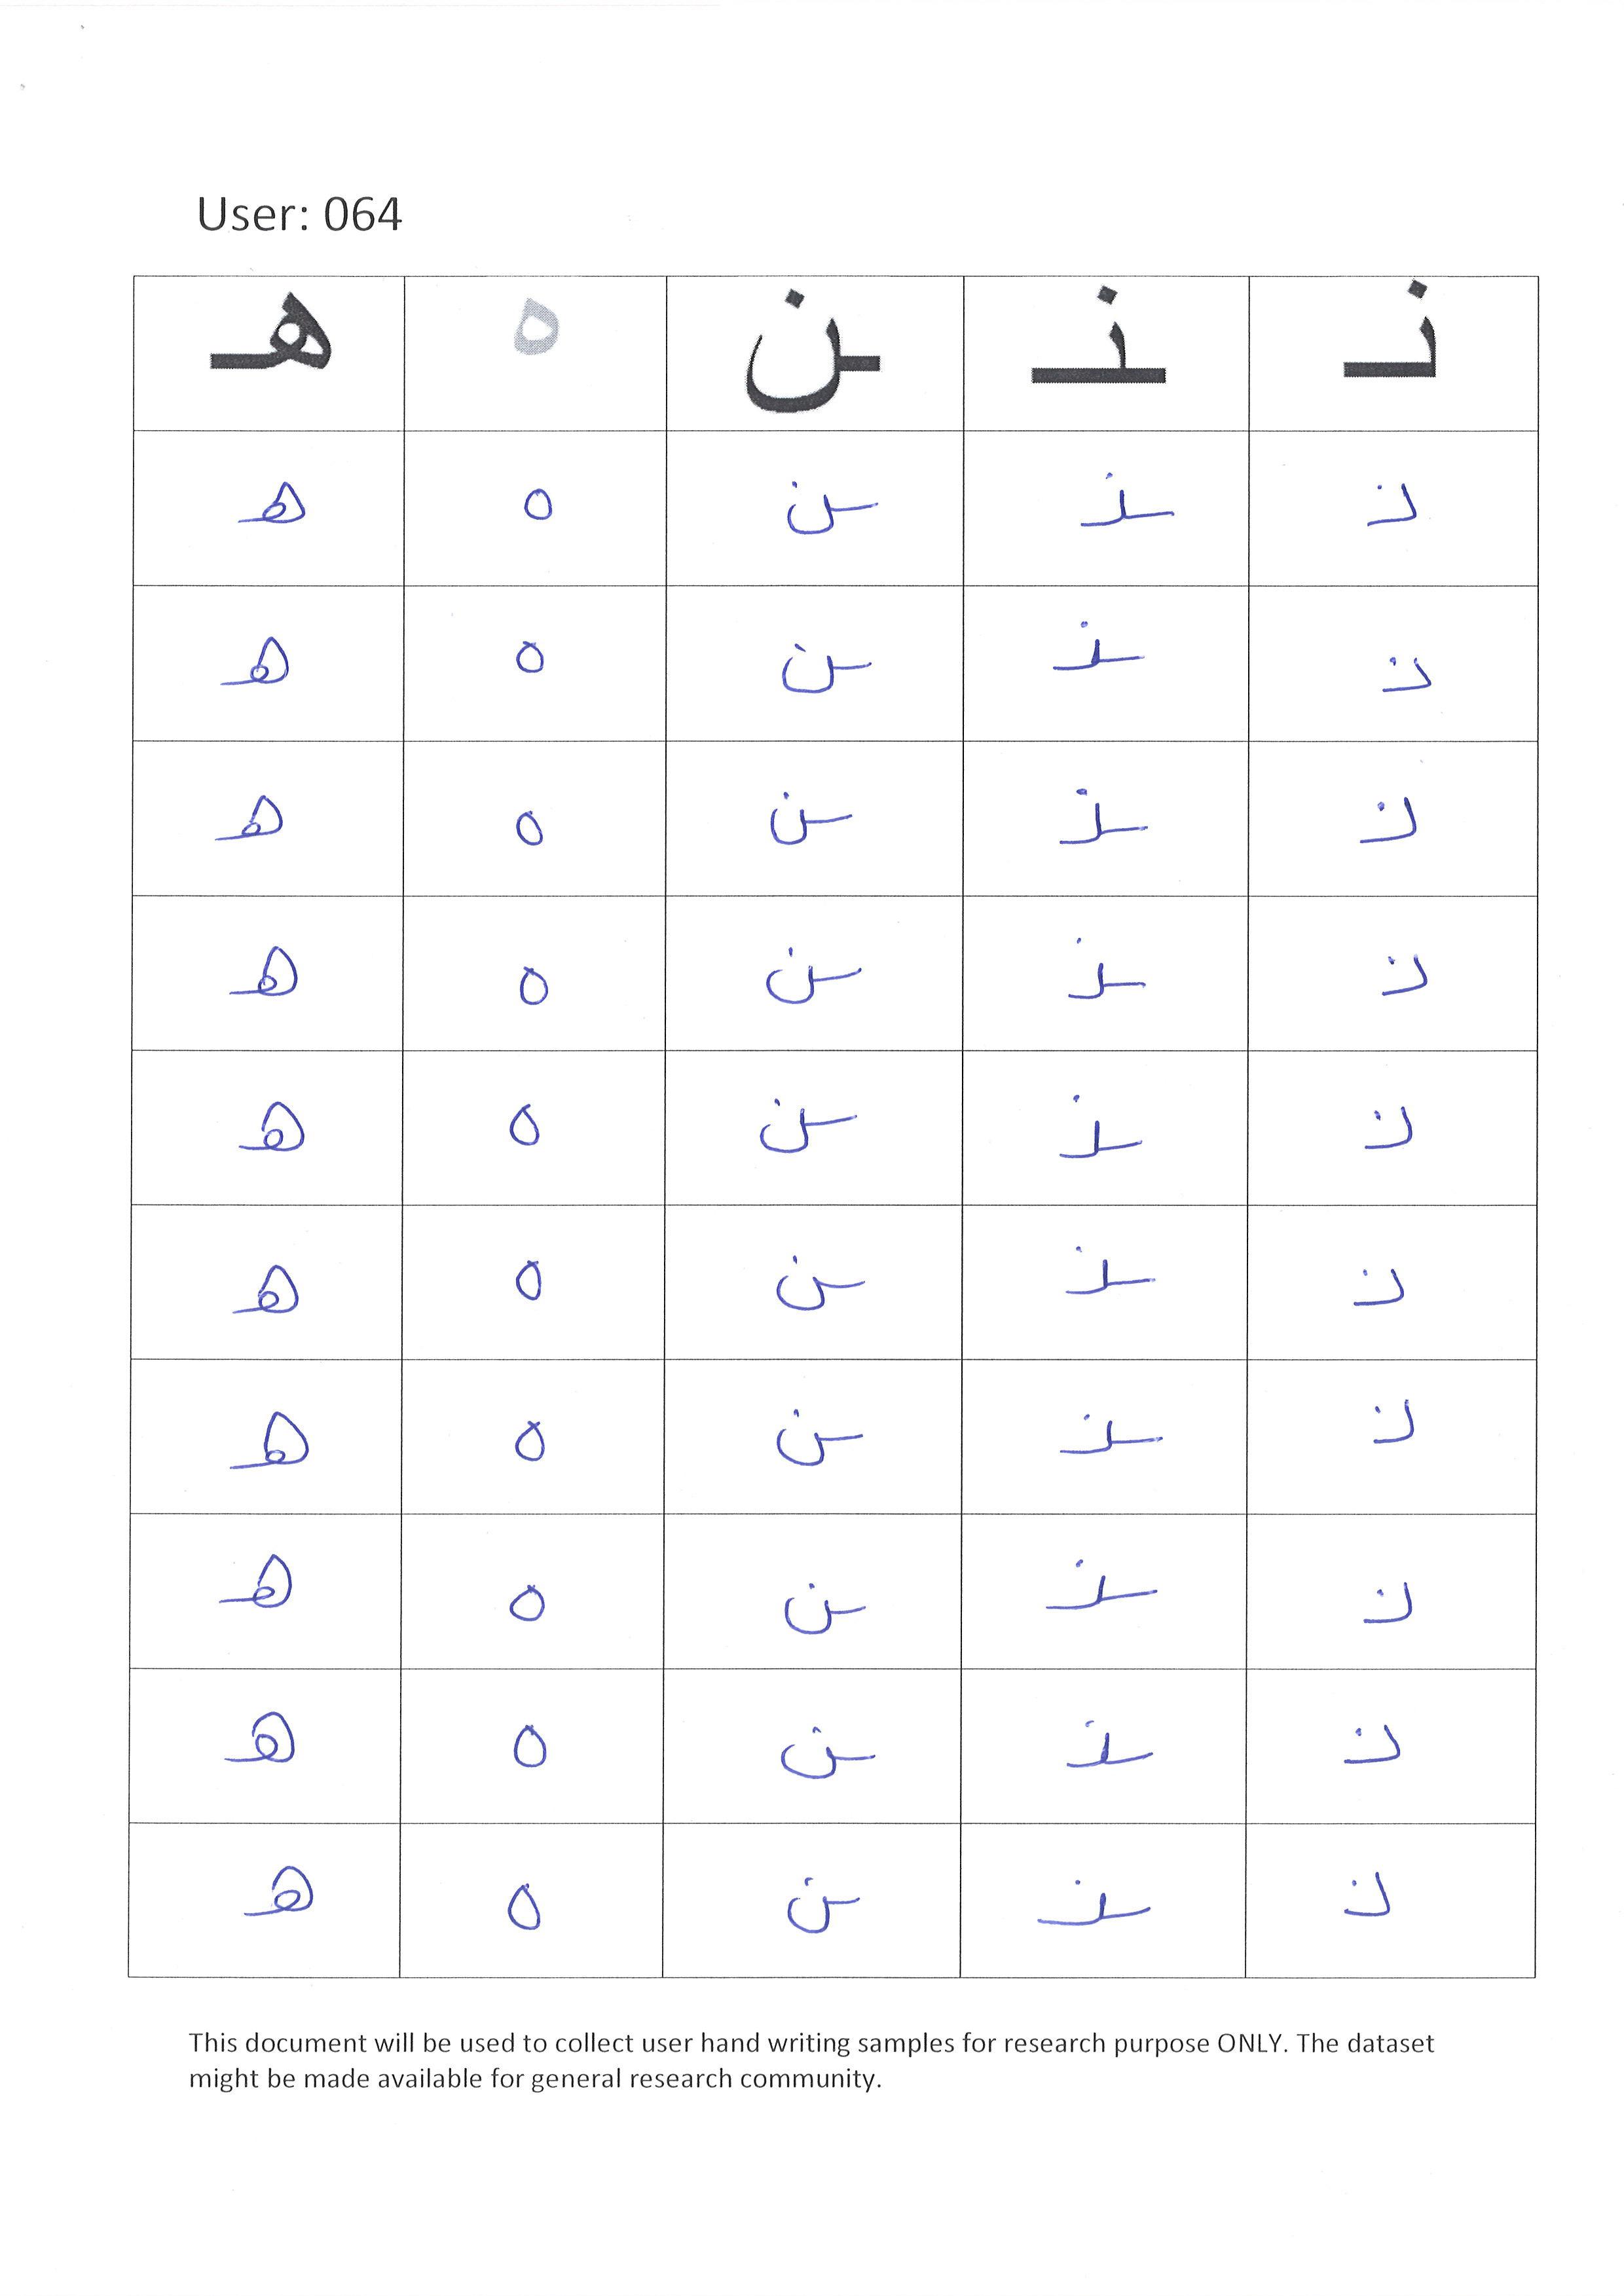 User: 064
نـ ـنـ ـن ه هـ
نـ ـنـ ـن ه هـ
نـ ـنـ ـن ه هـ
نـ ـنـ ـن ه هـ
نـ ـنـ ـن ه هـ
نـ ـنـ ـن ه هـ
نـ ـنـ ـن ه هـ
نـ ـنـ ـن ه هـ
نـ ـنـ ـن ه هـ
نـ ـنـ ـن ه هـ
نـ ـنـ ـن ه هـ
This document will be used to collect user hand writing samples for research purpose ONLY. The dataset
might be made available for general research community.